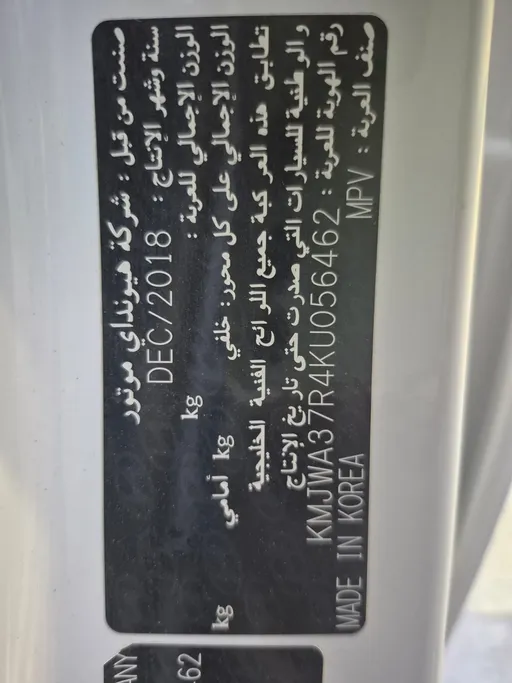 صنعت من قبل : شركة هيونداي موتور
سنة وشهر الإنتاج : DEC/2018
الوزن الإجمالي للعربة : kg
الوزن الإجمالي على كل محور: خلفي kg أمامي kg
تطابق هذه المركبة جميع اللوائح الفنية الخليجية
والوطنية للسيارات التي صدرت حتى تاريخ الإنتاج
رقم الهوية للعربة : KMJWA37R4KU056462
صنف العربة : MPV MADE IN KOREA
ANY
62